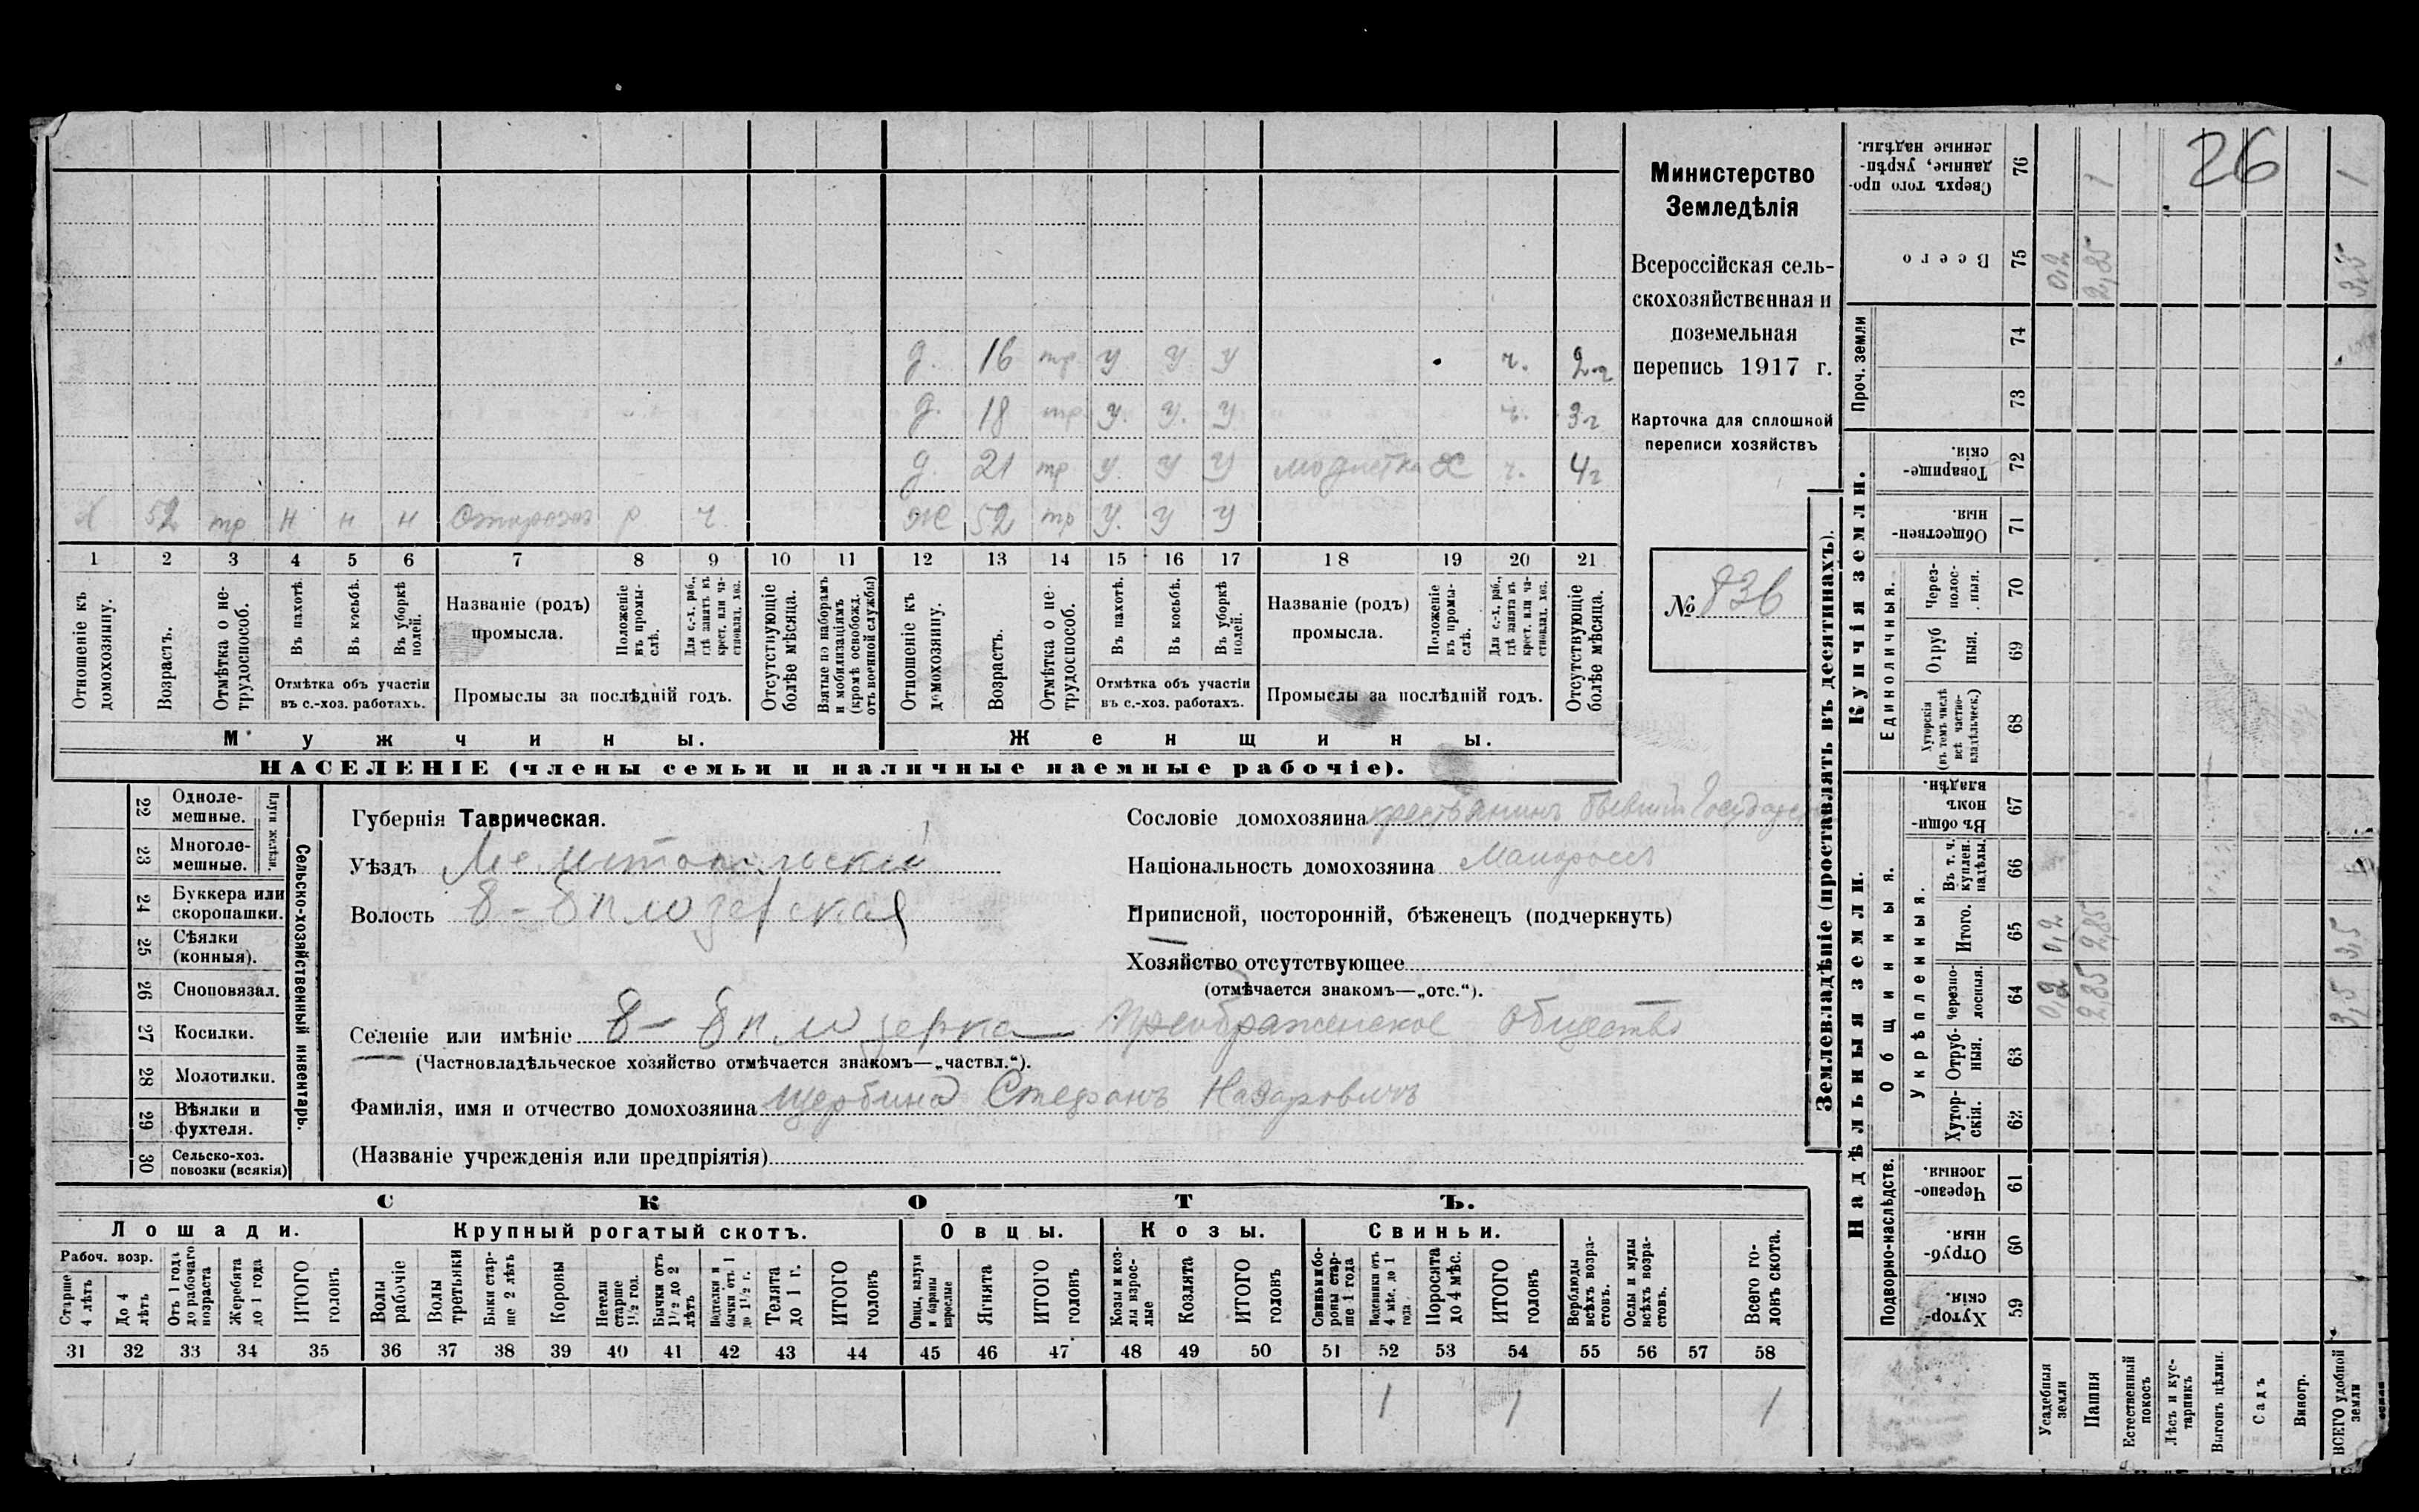 26
Министерство
Земледѣлія
Всероссійская сель-
скохозяйственная и
поземельная
перепись 1917 г.
Карточка для сплошной
переписи хозяйствъ
№ 836
д. 16 тр У У У ч. 2 г
д. 18 тр У. У. У ч. 3 г
д. 21 тр У. У У модистка х ч. 4 г
Х 52 тр н н н Сторожъ р ч. Ж 52 тр У. У У
1 2 3 4 5 6 7 8 9 10 11 12 13 14 15 16 17 18 19 20 21
Отношеніе къ домохозяину.
Возрастъ.
Отмѣтка о не-трудоспособ.
Въ пахотѣ.
Въ косьбѣ.
Въ уборкѣ полей.
Отмѣтка объ участіи
въ с.-хоз. работахъ.
Названіе (родъ)
промысла.
Положеніе въ промы-слѣ.
Для с.-х. раб., гдѣ занятъ въ крест. или ча-стновлад. хоз.
Промыслы за послѣдній годъ.
Отсутствующіе болѣе мѣсяца.
Взятые по наборамъ и мобилизаціямъ (кромѣ освобожд. отъ военной службы)
Отношеніе къ домохозяину.
Возрастъ.
Отмѣтка о не-трудоспособ.
Въ пахотѣ.
Въ косьбѣ.
Въ уборкѣ полей.
Отмѣтка объ участіи
въ с.-хоз. работахъ.
Названіе (родъ)
промысла.
Положеніе въ промы-слѣ.
Для с.-х. раб., гдѣ занята въ крест. или ча-стновлад. хоз.
Промыслы за послѣдній годъ.
Отсутствующіе болѣе мѣсяца.
Мужчины. Женщины.
НАСЕЛЕНІЕ (члены семьи и наличные наемные рабочіе).
Сельско-хозяйственный инвентарь.
Плуги желѣзн.
22 Одноле-мешные.
23 Многоле-мешные.
24 Буккера или скоропашки.
25 Сѣялки (конныя).
26 Сноповязал.
27 Косилки.
28 Молотилки.
29 Вѣялки и фухтеля.
30 Сельско-хоз. повозки (всякія)
Губернія Таврическая.
Уѣздъ Мелитопольскій
Волость В-Бѣлозерская
Сословіе домохозяина крестьянинъ бывшій Государств
Національность домохозяина Малоросъ
Приписной, посторонній, бѣженецъ (подчеркнуть)
Хозяйство отсутствующее
(отмѣчается знакомъ—„отс.“).
Селеніе или имѣніе В-Бѣлозерка Преображенское общество
(Частновладѣльческое хозяйство отмѣчается знакомъ—„частвл.“).
Фамилія, имя и отчество домохозяина Щербина Стефанъ Назаровичъ
(Названіе учрежденія или предпріятія)
СКОТЪ.
Лошади. Крупный рогатый скотъ. Овцы. Козы. Свиньи.
Рабоч. возр.
Старше 4 лѣтъ
До 4 лѣтъ
Отъ 1 года до рабочаго возраста
Жеребята до 1 года
ИТОГО головъ
Волы рабочіе
Волы третьяки
Быки стар-ше 2 лѣтъ
Коровы
Нетели старше 1½ год.
Бычки отъ 1½ до 2 лѣтъ
Подтелки и бычки отъ 1 до 1½ г.
Телята до 1 г.
ИТОГО головъ
Овцы, валухи и бараны взрослые
Ягнята
ИТОГО головъ
Козы и коз-лы взрос-лые
Козлята
ИТОГО головъ
Свиньи и бо-ровы стар-ше 1 года
Подсвинки отъ 4 мѣс. до 1 года
Поросята до 4 мѣс.
ИТОГО головъ
Верблюды всѣхъ возра-стовъ.
Ослы и мулы всѣхъ возра-стовъ.
Всего го-ловъ скота.
31 32 33 34 35 36 37 38 39 40 41 42 43 44 45 46 47 48 49 50 51 52 53 54 55 56 57 58
1 1 1
Землевладѣніе (проставлять въ десятинахъ).
Купчія земли.
Надѣльныя земли.
Проч. земли
Единоличныя.
Общинныя.
Укрѣпленныя.
Подворно-наслѣдств.
Сверхъ того про-данные, укрѣп-ленные надѣлы. 76 1 1
Всего 75 0,2 2,85 3,5
74
73
Товарище-скія. 72
Обществен-ныя. 71
Через-полос-ныя. 70
Отруб ныя. 69
Хуторскія (въ томъ числѣ всѣ частно-владѣльческ.) 68
Въ общи-номъ владѣн. 67
Въ т. ч. куплен. надѣлы. 66
Итого. 65 0,2 2,85 3,5
Черезпо-лосныя. 64 0,2 2,85 3,5
Отруб-ныя. 63
Хутор-скія. 62
Черезпо-лосныя. 61
Отруб-ныя. 60
Хутор-скія. 59
Усадебныя земли
Пашня
Естественный покосъ
Лѣсъ и кус-тарникъ
Выгонъ цѣлин.
Садъ
Виногр.
ВСЕГО удобной земли